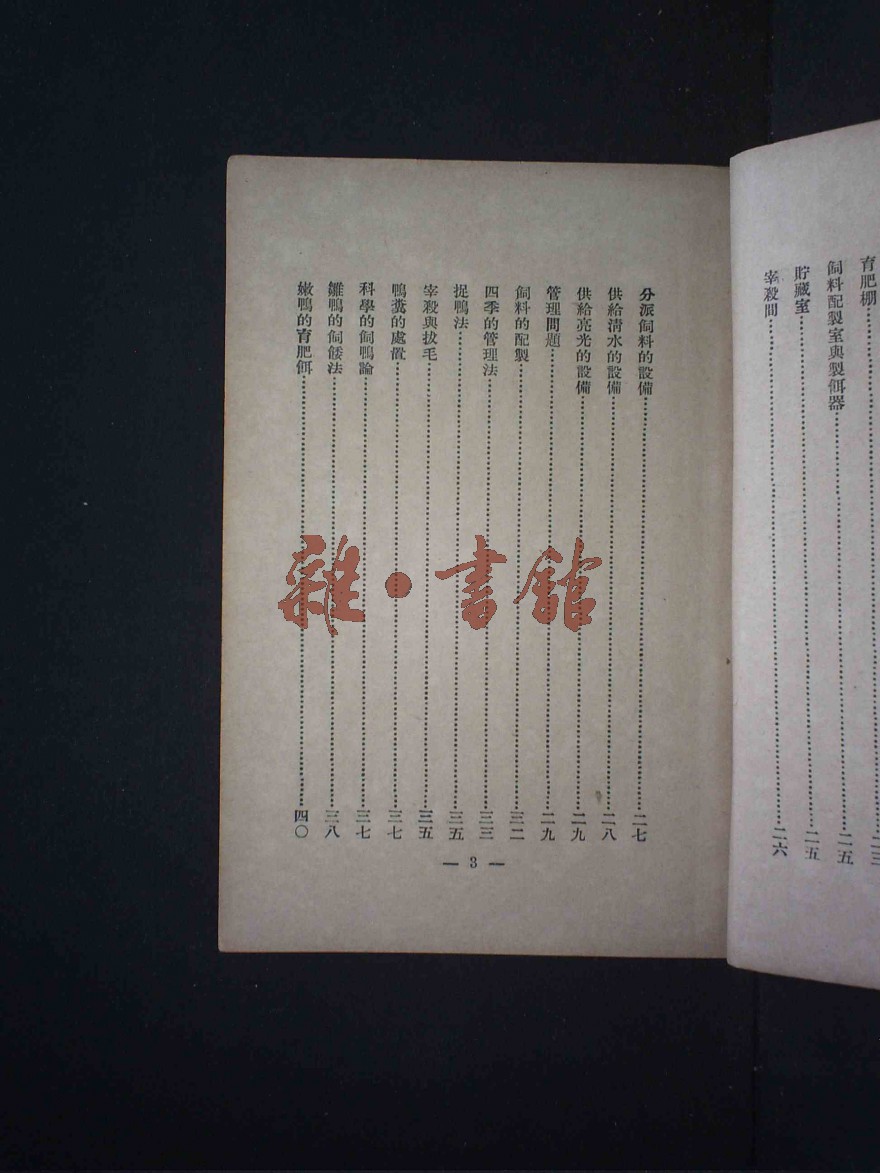 育肥棚……二三
飼料配製室與製餌器……二五
貯藏室……二五
宰殺間……二六
分派飼料的設備……二七
供給清水的設備……二八
供給亮光的設備……二九
管理問題……二九
飼料的配製……三二
四季的管理法……三三
捉鴨法……三五
宰殺與拔毛……三五
鴨糞的處置……三七
科學的飼鴨論……三七
雛鴨的飼餧法……三八
嫩鴨的育肥餌……四〇
— 3 —
雜·書館